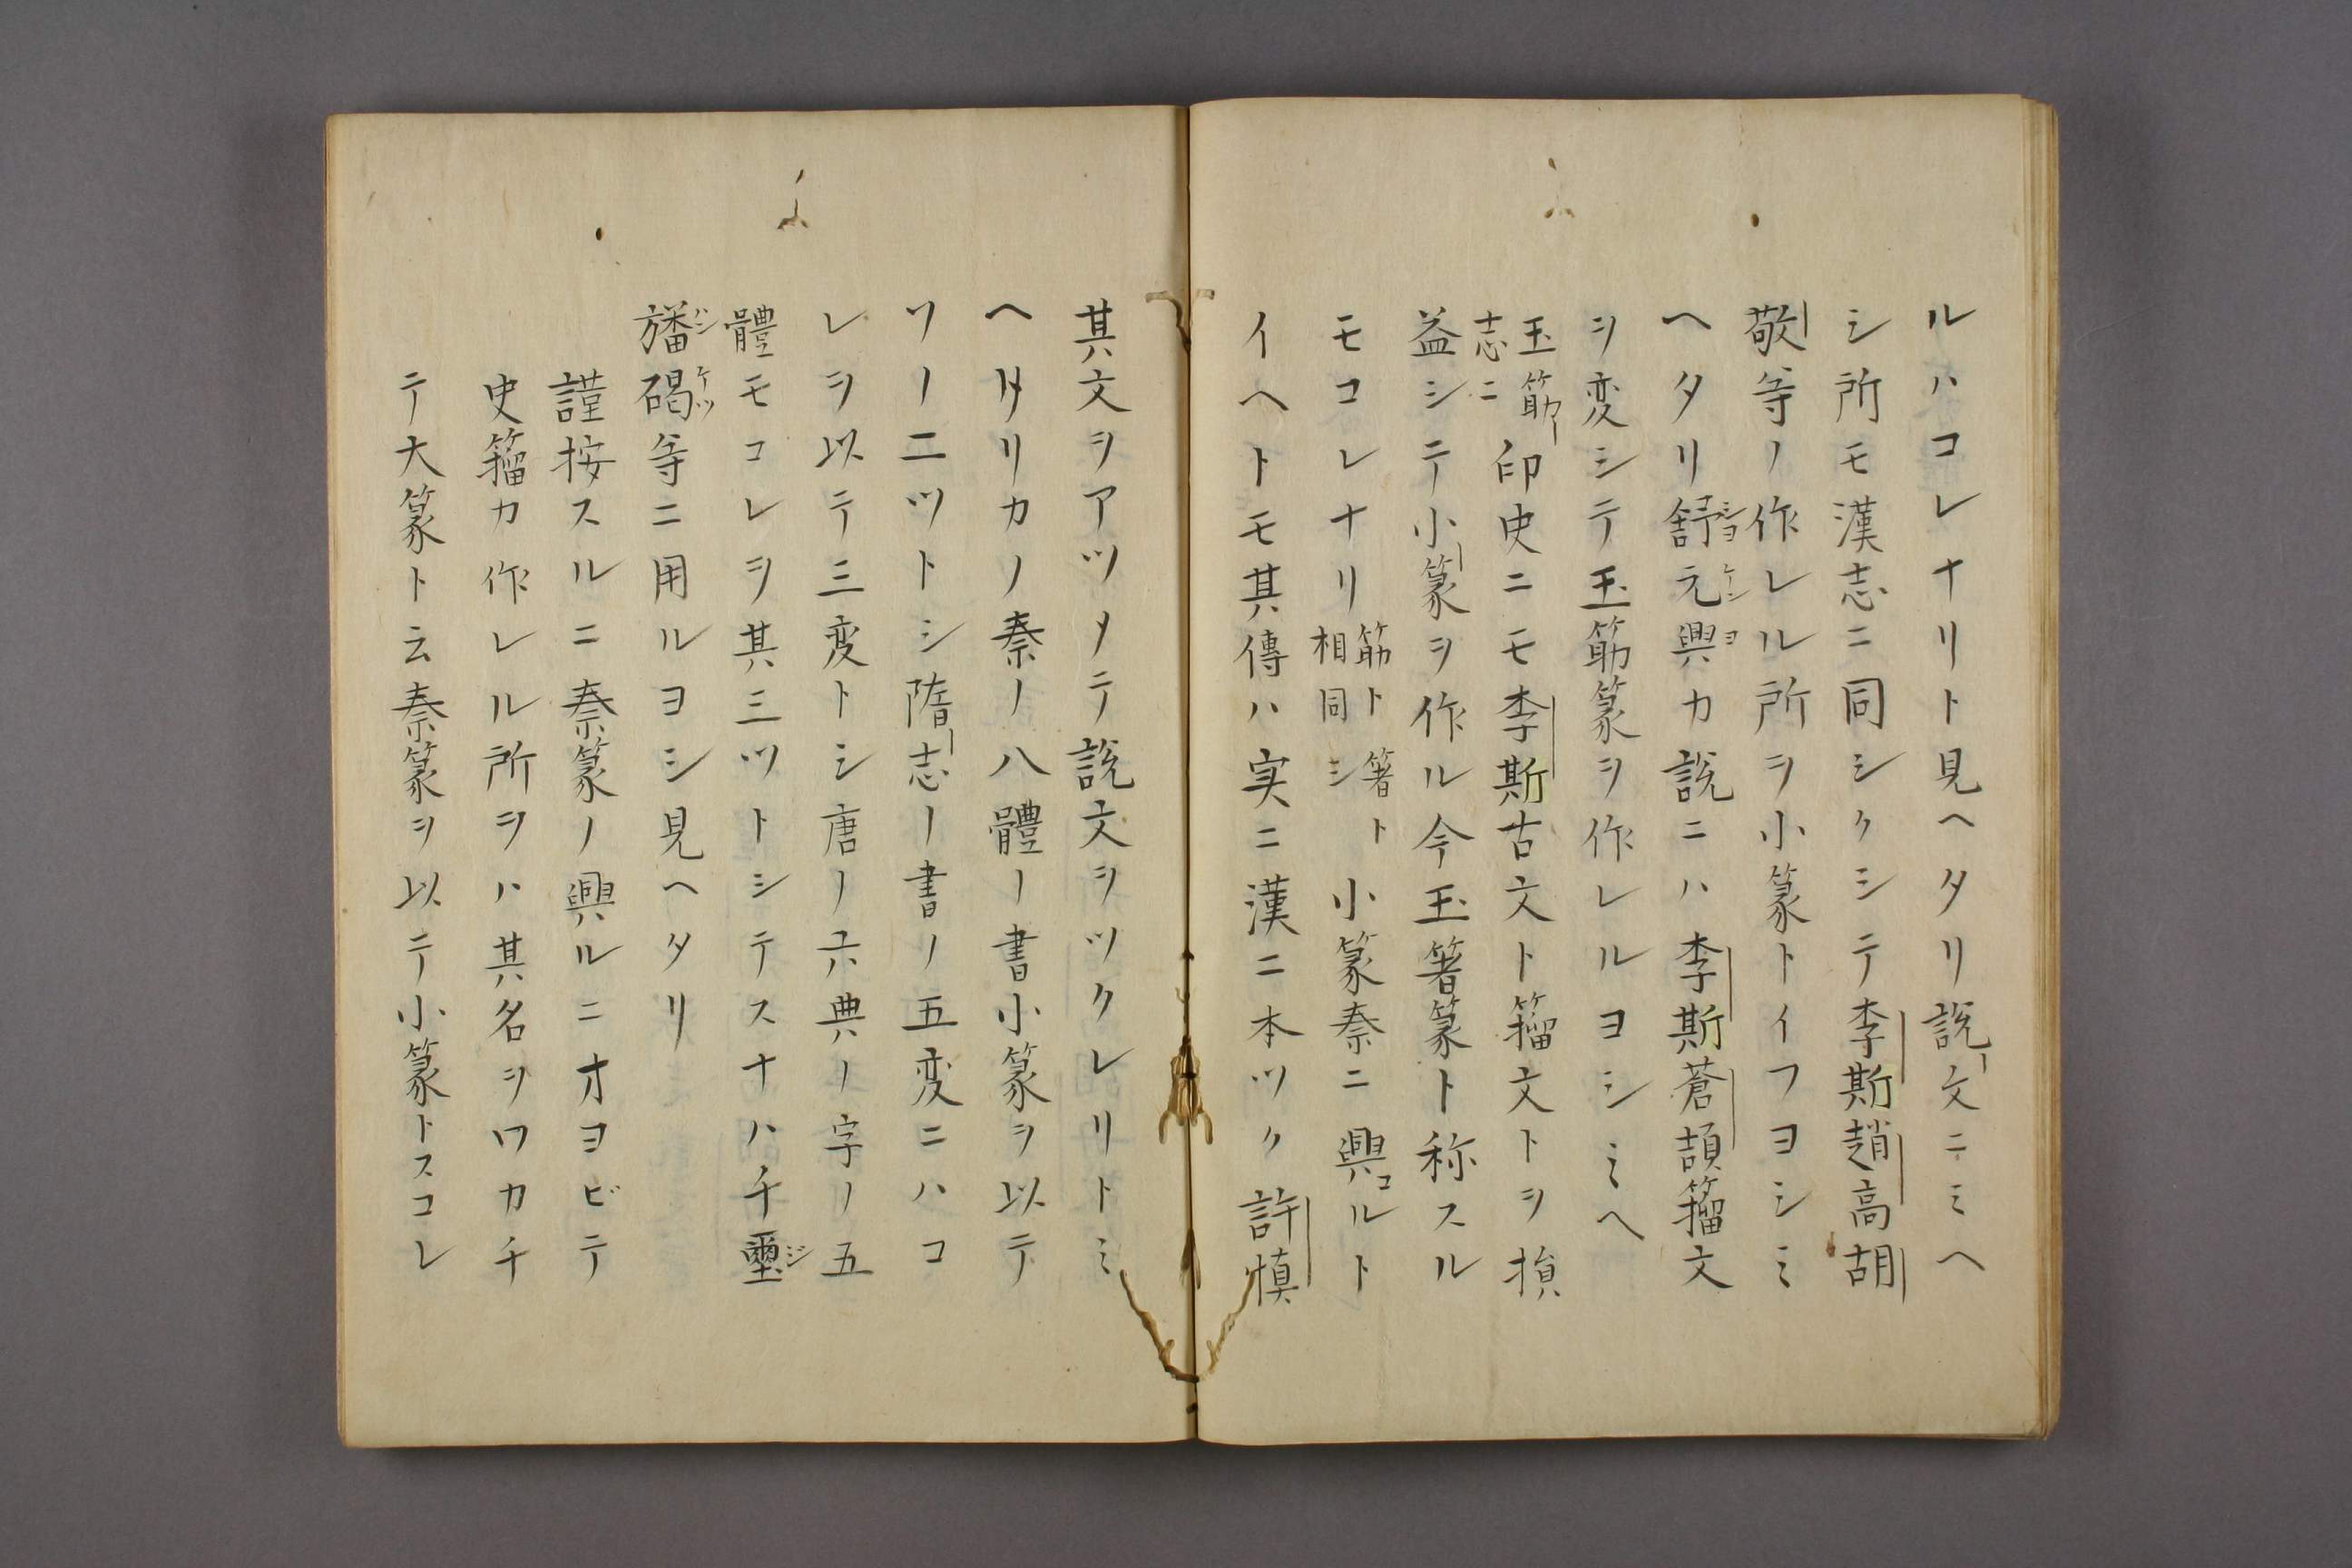 ルハコレナリト見ヘタリ説文ニミヘ
シ所モ漢志ニ同シクシテ李斯趙高胡
敬等ノ作レル所ヲ小篆トイフヨシミ
ヘタリ舒元輿カ説ニハ李斯蒼頡籀文
ショ ケン ヨ
ヲ変シテ玉筯篆ヲ作レルヨシミヘ
玉筯
志ニ
印史ニモ李斯古文ト籀文トヲ損
益シテ小篆ヲ作ル今玉箸篆ト称スル
モコレナリ
筯ト箸ト
相同シ
小篆秦ニ興ルト
コ
イヘトモ其傳ハ実ニ漢ニ本ツク許慎
其文ヲアツメテ説文ヲツクレリトミ
ヘタリカノ秦ノ八體ノ書小篆ヲ以テ
ソノ二ツトシ隋志ノ書ノ五変ニハコ
レヲ以テ三変トシ唐ノ六典ノ字ノ五
體モコレヲ其三ツトシテスナハチ璽
ジ
旛碣等ニ用ルヨシ見ヘタリ
ハン ケツ
謹按スルニ秦篆ノ興ルニオヨビテ
史籀カ作レル所ヲハ其名ヲワカチ
テ大篆ト云秦篆ヲ以テ小篆トスコレ